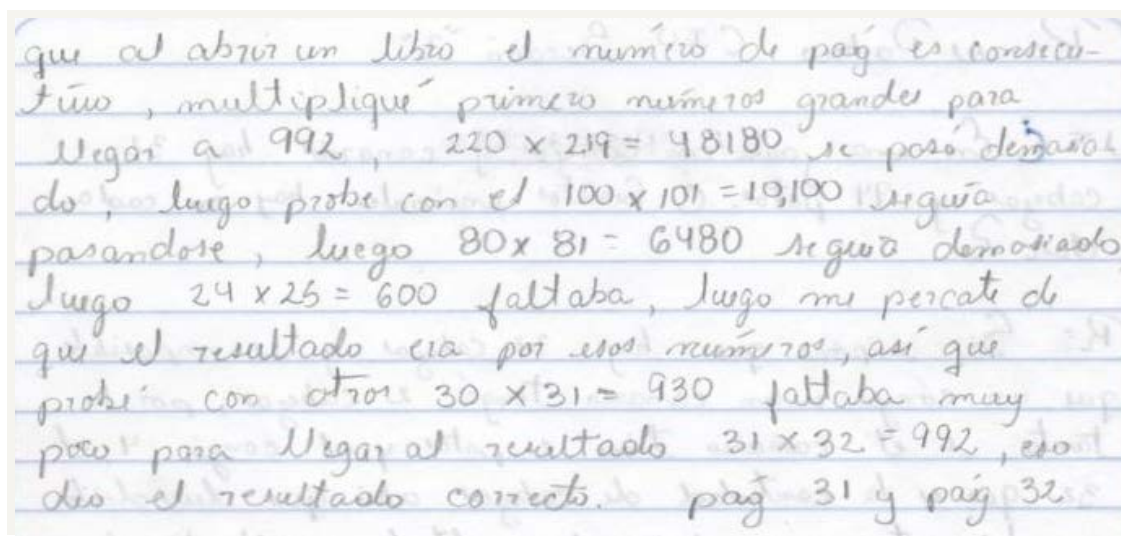 que al abrir un libro el número de pag es consecu-
tivo, multipliqué primero números grandes para
llegar a 992, 220 x 219 = 48180 se pasó demasia
do, luego probe con el 100 x 101 = 10,100 seguía
pasandose, luego 80 x 81 = 6480 seguía demasiado
luego 24 x 25 = 600 faltaba, luego me percate de
que el resultado era por esos números, asi que
probé con otros 30 x 31 = 930 faltaba muy
poco para llegar al resultado 31 x 32 = 992, eso
dio el resultado correcto. pag 31 y pág 32